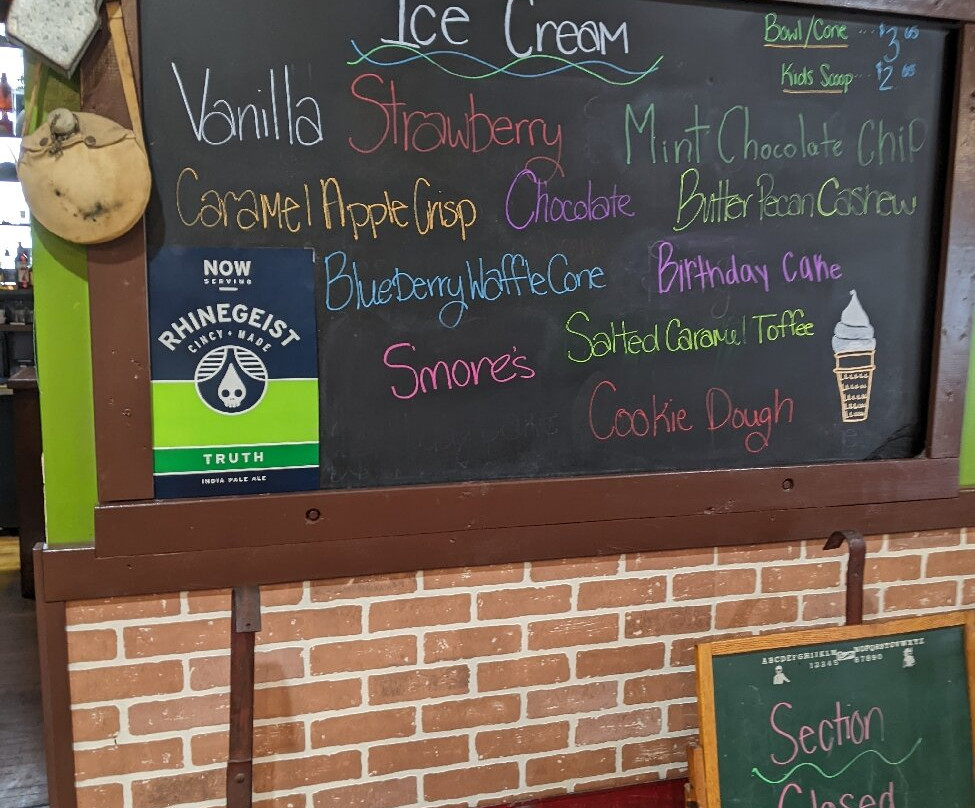 Ice Cream
Bowl/Cone ... $3
Kids Scoop ... $2
Vanilla Strawberry Mint Chocolate Chip
Caramel Apple Crisp Chocolate Butter Pecan Cashew
Blueberry Waffle Cone Birthday Cake
Salted Caramel Toffee
Smore's
Cookie Dough
NOW
SERVING
RHINEGEIST
CINCY • MADE
TRUTH
INDIA PALE ALE
Section
Closed